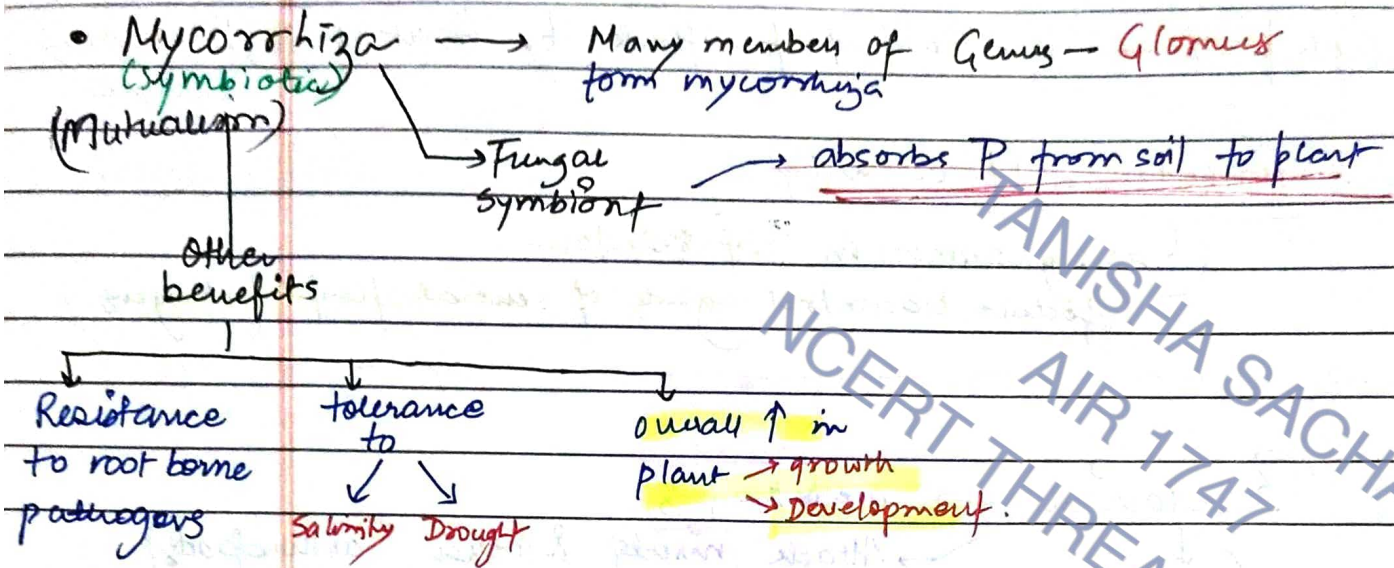 • Mycorrhiza → Many members of Genus - Glomus
(Symbiotic) form mycorrhiza
(Mutualism)
→ Fungal → absorbs P from soil to plant
symbiont
Other
benefits
Resistance
to root borne
pathogens
tolerance
to
Salinity Drought
overall ↑ in
plant → growth
→ Development.
TANISHA SACH
AIR 1747
NCERT THREA